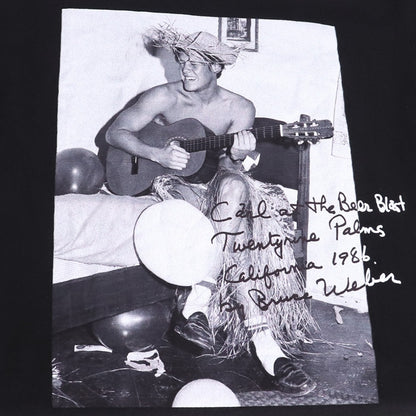 Carl at the Beer Blast
Twentynine Palms
California 1986.
by Bruce Weber